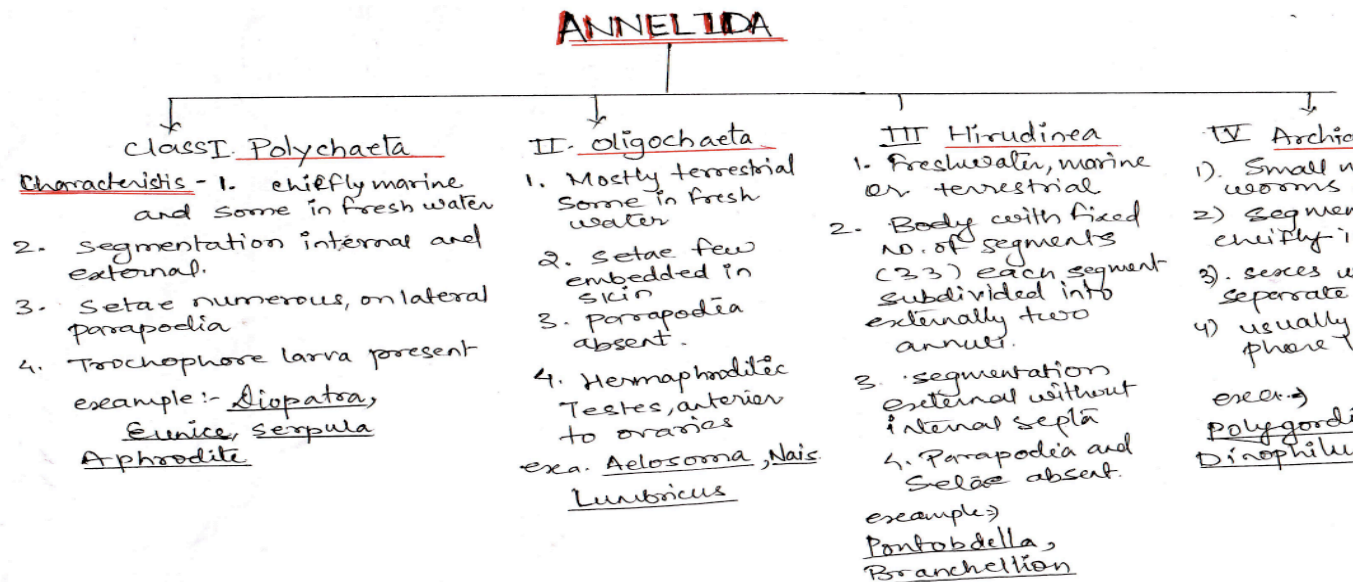 ANNELIDA
class I. Polychaeta
Characteristis - 1. chiefly marine
and some in fresh water
2. segmentation internal and
external.
3. Setae numerous, on lateral
parapodia
4. Trochophore larva present
example:- Diopatra,
Eunice, Serpula
Aphrodite
II. Oligochaeta
1. Mostly terrestrial
some in fresh
water
2. Setae few
embedded in
skin
3. Parapodia
absent.
4. Hermaphroditic
Testes, anterior
to ovaries
exa. Aelosoma, Nais
Lumbricus
III Hirudinea
1. Freshwater, marine
or terrestrial
2. Body with fixed
no. of segments
(33) each segment
subdivided into
externally two
annuli.
3. segmentation
external without
internal septa
4. Parapodia and
Setae absent.
example:→
Pontobdella,
Branchellion
IV Archia
1). Small
worms
2) segmen
cheifly i
3). sexes
seperate
4) usually
phore
exa:→
Polygordi
Dinophilu